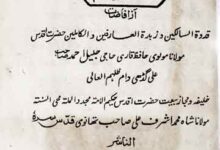 از افاضات
قدوة السالکین و زبدة العارفین و الکاملین حضرت اقدس
مولانا مولوی حافظ قاری حاجی جلیل احمد صاحب
علی گڑھی دام ظلہم العالی
خلیفہ و مجاز بیعت حضرت اقدس حکیم الامة مجدد الملة محی السنة
مولانا شاہ محمد اشرف علی صاحب تھانوی قدس سرہ
الناشر